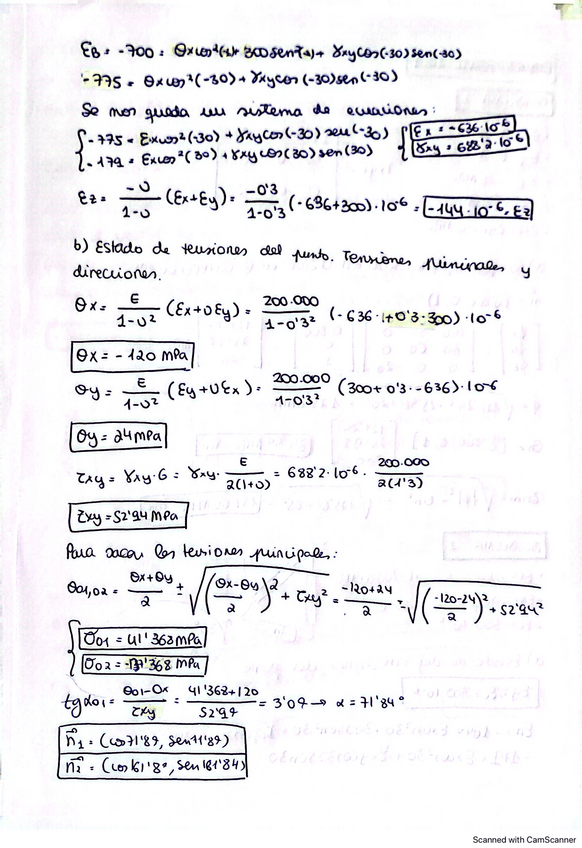 εB = -700 = θxcos²(-30)+300sen²(-30)+γxycos(-30)sen(-30)
-775 = θxcos²(-30)+γxycos(-30)sen(-30)
Se nos queda un sistema de ecuaciones:
{-775 = Excos²(-30)+γxycos(-30)sen(-30) {Ex = -636·10⁻⁶
-179 = Excos²(30)+γxycos(30)sen(30) γxy = 688'2·10⁻⁶
Ez = -υ/1-υ (Ex+Ey) = -0'3/1-0'3 (-636+300)·10⁻⁶ = -144·10⁻⁶ = Ez
b) Estado de tensiones del punto. Tensiones principales y
direcciones.
θx = E/1-υ² (Ex+υEy) = 200.000/1-0'3² (-636+0'3·300)·10⁻⁶
θx = -120 mPa
θy = E/1-υ² (Ey+υEx) = 200.000/1-0'3² (300+0'3·-636)·10⁻⁶
θy = 24mPa
τxy = γxy·G = γxy· E/2(1+υ) = 688'2·10⁻⁶· 200.000/2(1'3)
τxy = 52'94 mPa
Para sacar las tensiones principales:
θ01,02 = θx+θy/2 ± √((θx-θy/2)²+τxy²) = -120+24/2 ± √((-120-24/2)²+52'94²)
{σ01 = 41'368 mPa
σ02 = -137'368 mPa
tgα01 = θ01-θx/τxy = 41'368+120/52'94 = 3'04 → α = 71'84°
n⃗1 = (cos71'84, sen71'84)
n⃗2 = (cos161'8°, sen161'84)
Scanned with CamScanner